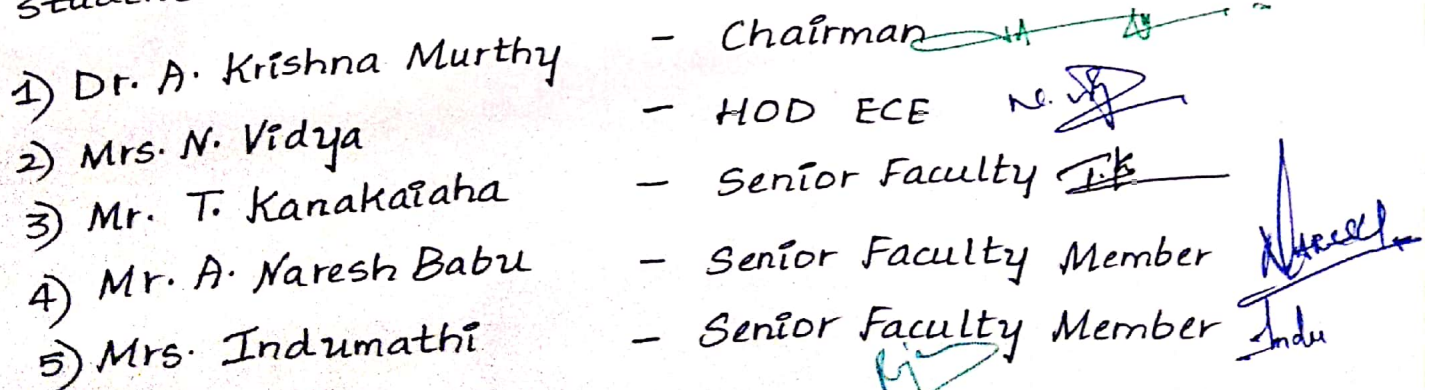 1) Dr. A. Krishna Murthy - Chairman
2) Mrs. N. Vidya - HOD ECE
3) Mr. T. Kanakaiaha - Senior Faculty T.K
4) Mr. A. Naresh Babu - Senior Faculty Member
5) Mrs. Indumathi - Senior Faculty Member Indu